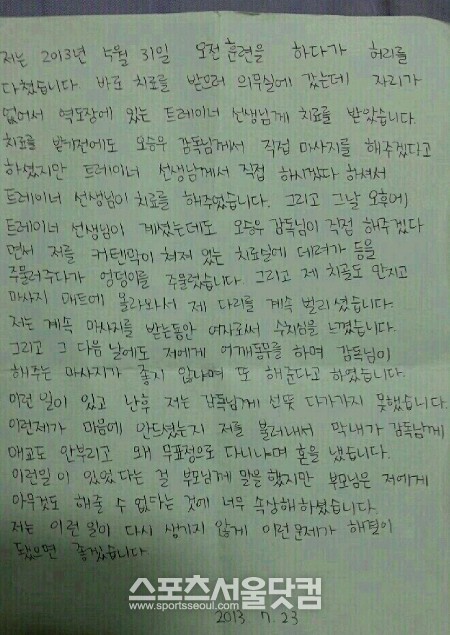 저는 2013년 5월 31일 오전 훈련을 하다가 허리를
다쳤습니다. 바로 치료를 받으러 의무실에 갔는데 자리가
없어서 역도장에 있는 트레이너 선생님께 치료를 받았습니다.
치료를 받기전에도 오승우 감독님께서 직접 마사지를 해주겠다고
하셨지만 트레이너 선생님께서 직접 하시겠다 하셔서
트레이너 선생님이 치료를 해주셨습니다. 그리고 그날 오후에
트레이너 선생님이 계셨는데도 오승우 감독님이 직접 해주겠다
면서 저를 커텐막이 쳐져 있는 치료실에 데려가 등을
주물러주다가 엉덩이를 주물렀습니다. 그리고 제 치골도 만지고
마사지 매트에 올라와서 제 다리를 계속 벌리셨습니다.
저는 계속 마사지를 받는동안 여자로써 수치심을 느꼈습니다.
그리고 그 다음 날에도 저에게 어깨동무를 하며 감독님이
해주는 마사지가 좋지 않냐며 또 해준다고 하였습니다.
이런 일이 있고 난후 저는 감독님께 선뜻 다가가지 못했습니다.
이런제가 마음에 안드셨는지 저를 불러내서 막내가 감독님께
애교도 안부리고 왜 무표정으로 다니냐며 혼을 냈습니다.
이런일이 있었다는 걸 부모님께 말을 했지만 부모님은 저에게
아무것도 해줄 수 없다는 것에 너무 속상해 하셨습니다.
저는 이런 일이 다시 생기지 않게 이런 문제가 해결이
됐으면 좋겠습니다
스포츠서울닷컴
www.sportsseoul.com
2013. 7. 23